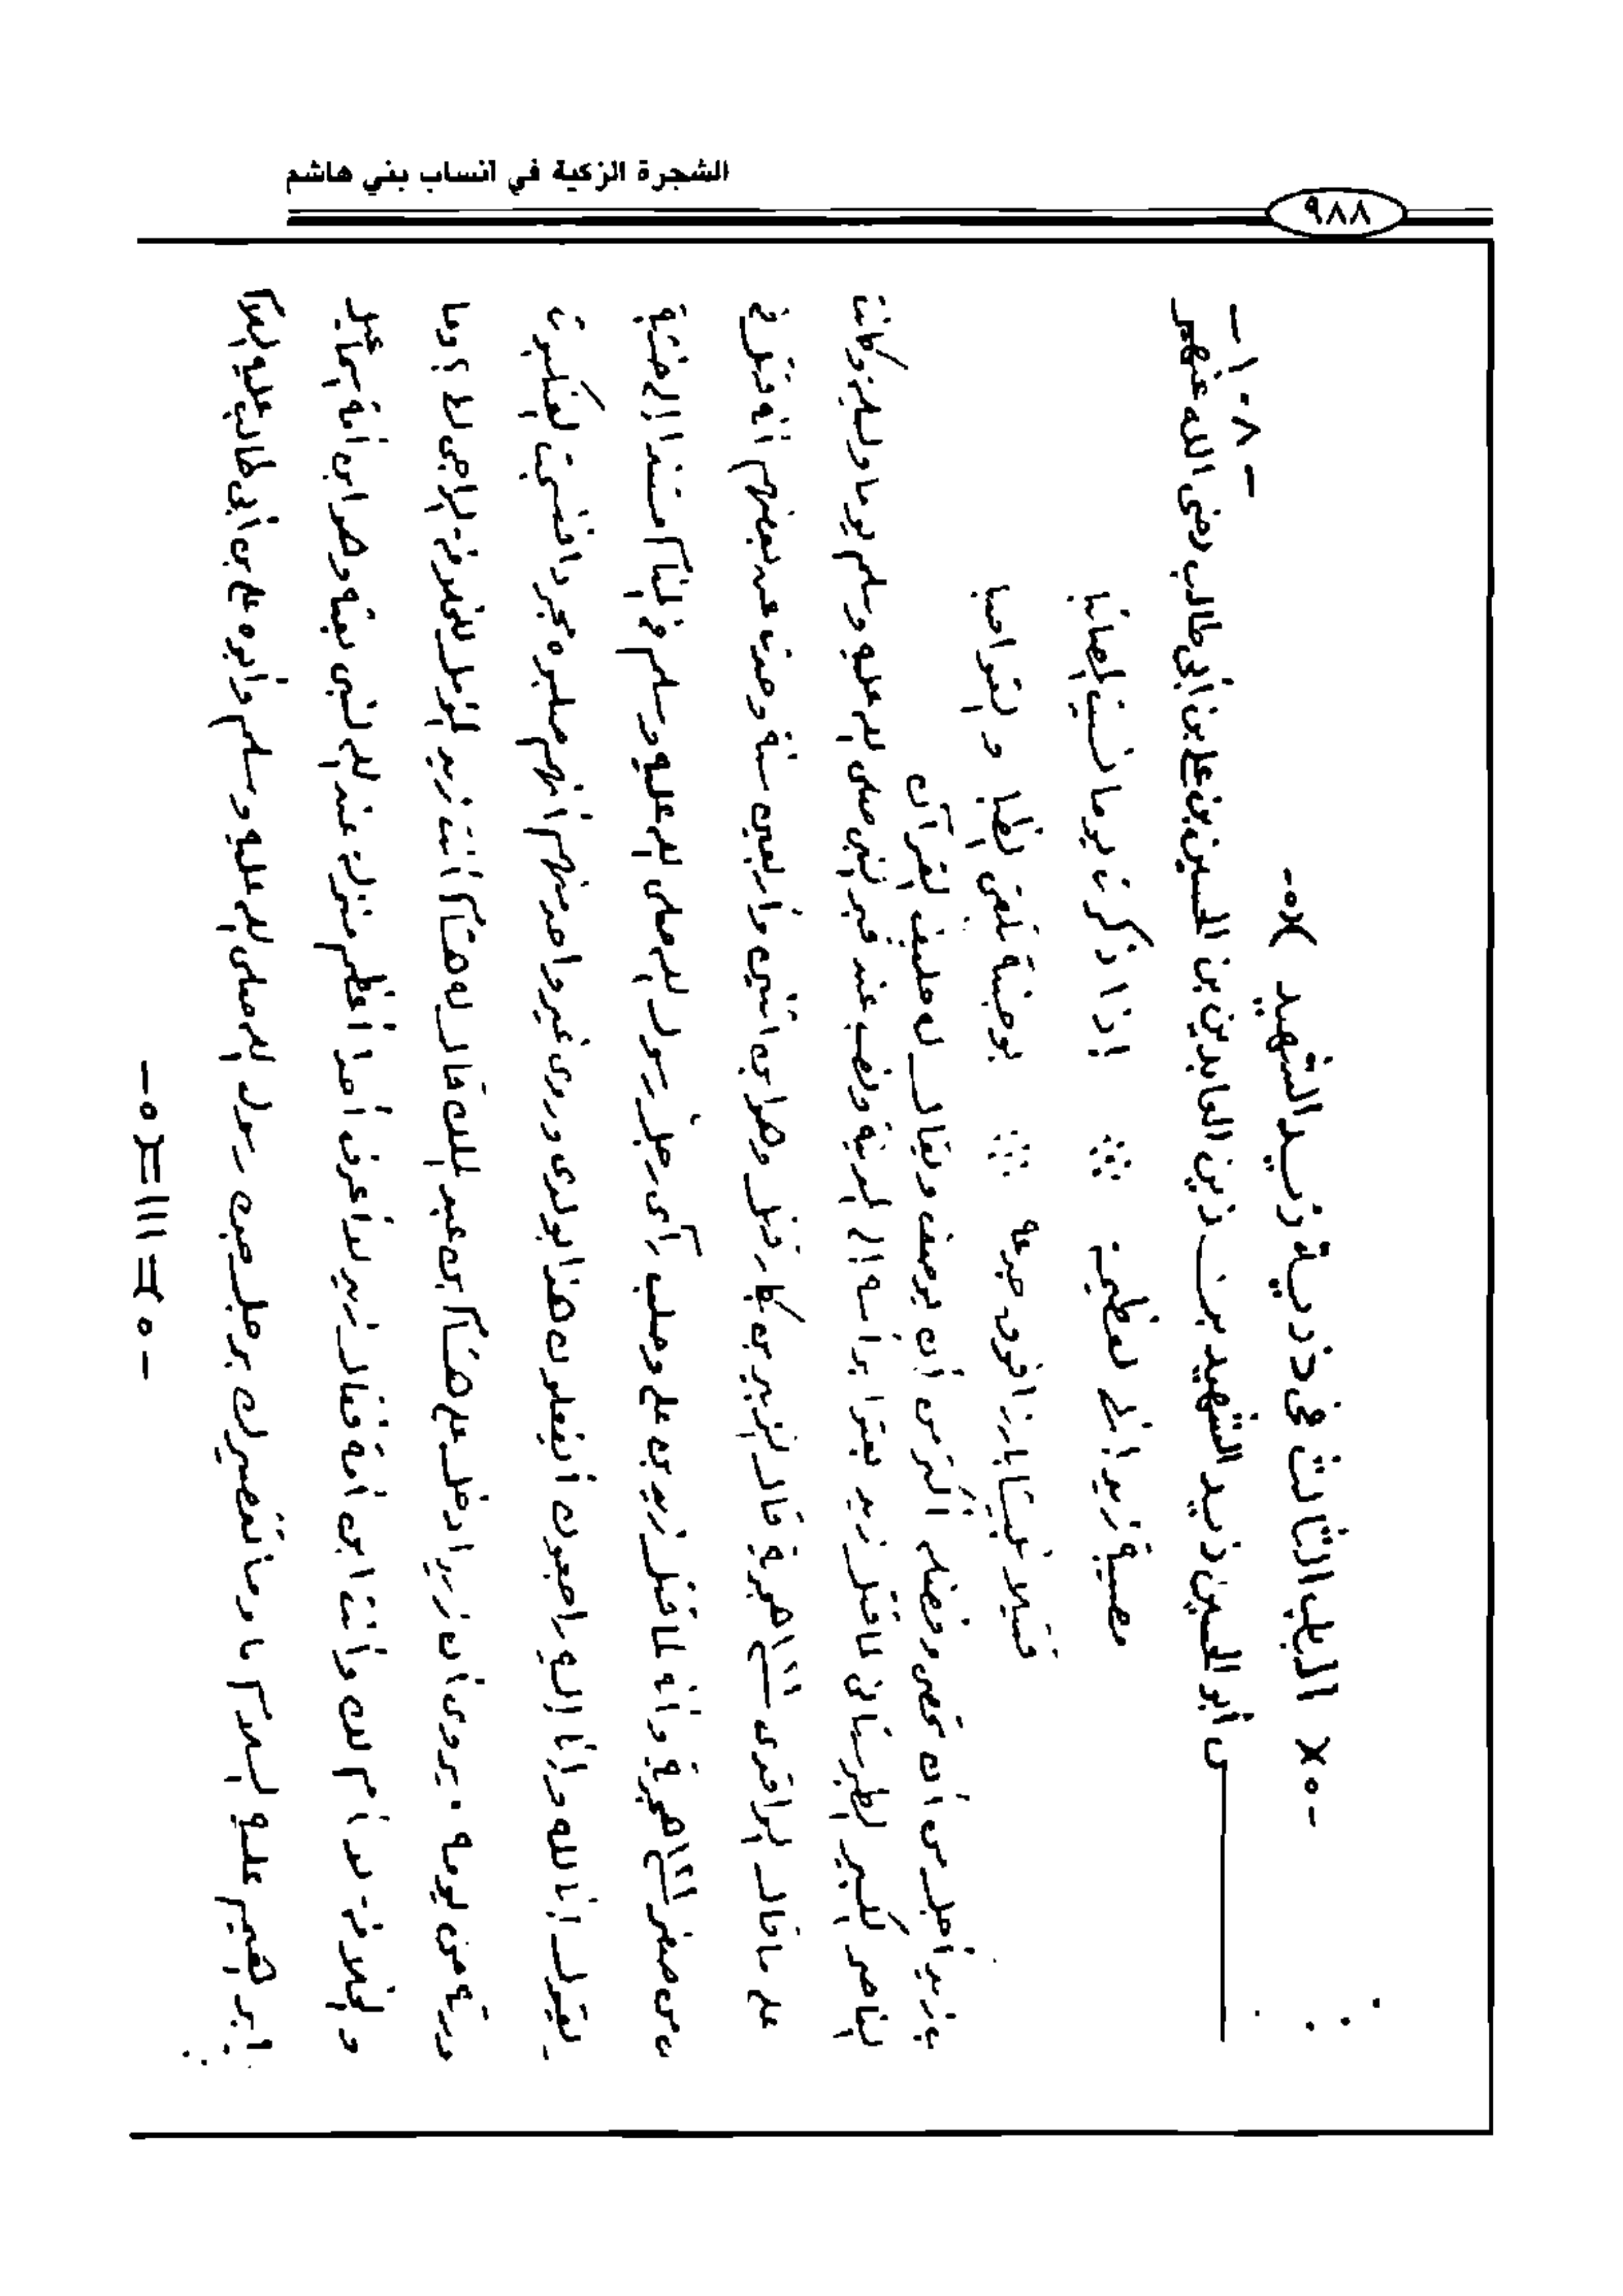 الشجرة الزكية في انساب بني هاشم
٩٨٨
-١٠٨-
-٥× الباب الثالث في ذرية زيد الشهيد ×٥-
أبو الحسين زيد الشهيد بن زين العابدين بن الحسين بن علي بن أبي طالب رضى الله عنهم
مصيبة زيد انها لعظيمة ∴ اذا ذكرت يوما نسيت المصائبا
قتيلا نبيشا بارزا فوق جذعه ∴ بوجنة تلقى الظبا والقواضبا
وزيد أجل من أن تحصى وفضله أكثر من أن يوصف ويقال له حليف القرآن
الناصر الكبير الطبرستانى لما قتل زيد بعثوا برأسه الى المدينة ونصب عند قبر النبى صلى الله عليه وسلم يوما وليلة وكانت
على ما قال الواقدى سنة ١٢١ هجرية قال الزبير بن بكار قتل وهو ابن اثنين وأربعين سنة وحدث عند بعضهم انه قتل فى
من صفر ١٢١ هجرية وأنه لما قتل زيد بن على وصلب رأى رجل رسول الله صلى الله عليه وسلم فى المنام مستندا الى خشبة
يقول انا لله وانا اليه راجعون أيفعلون هذا بولدى وروى غير واحد منهم أنهم صلبوه مجردا فنسجت العنكبوت
عورته من يومه . يروى ان زيدا دخل على هشام بن عبد الملك قال له هشام أنت زيد المؤمل للخلافة الراجى لها وما
والخلافة لا أم لك وأنت ابن أمة فقال زيد لا أعرف أحدا أعظم منزلة عند الله لنبى بعثه وهو ابن أمة اسماعيل
ابن ابراهيم عليه السلام وما تقصيرك برجل جده رسول الله صلى الله عليه وسلم وأبوه على بن أبى طالب عليه السلام